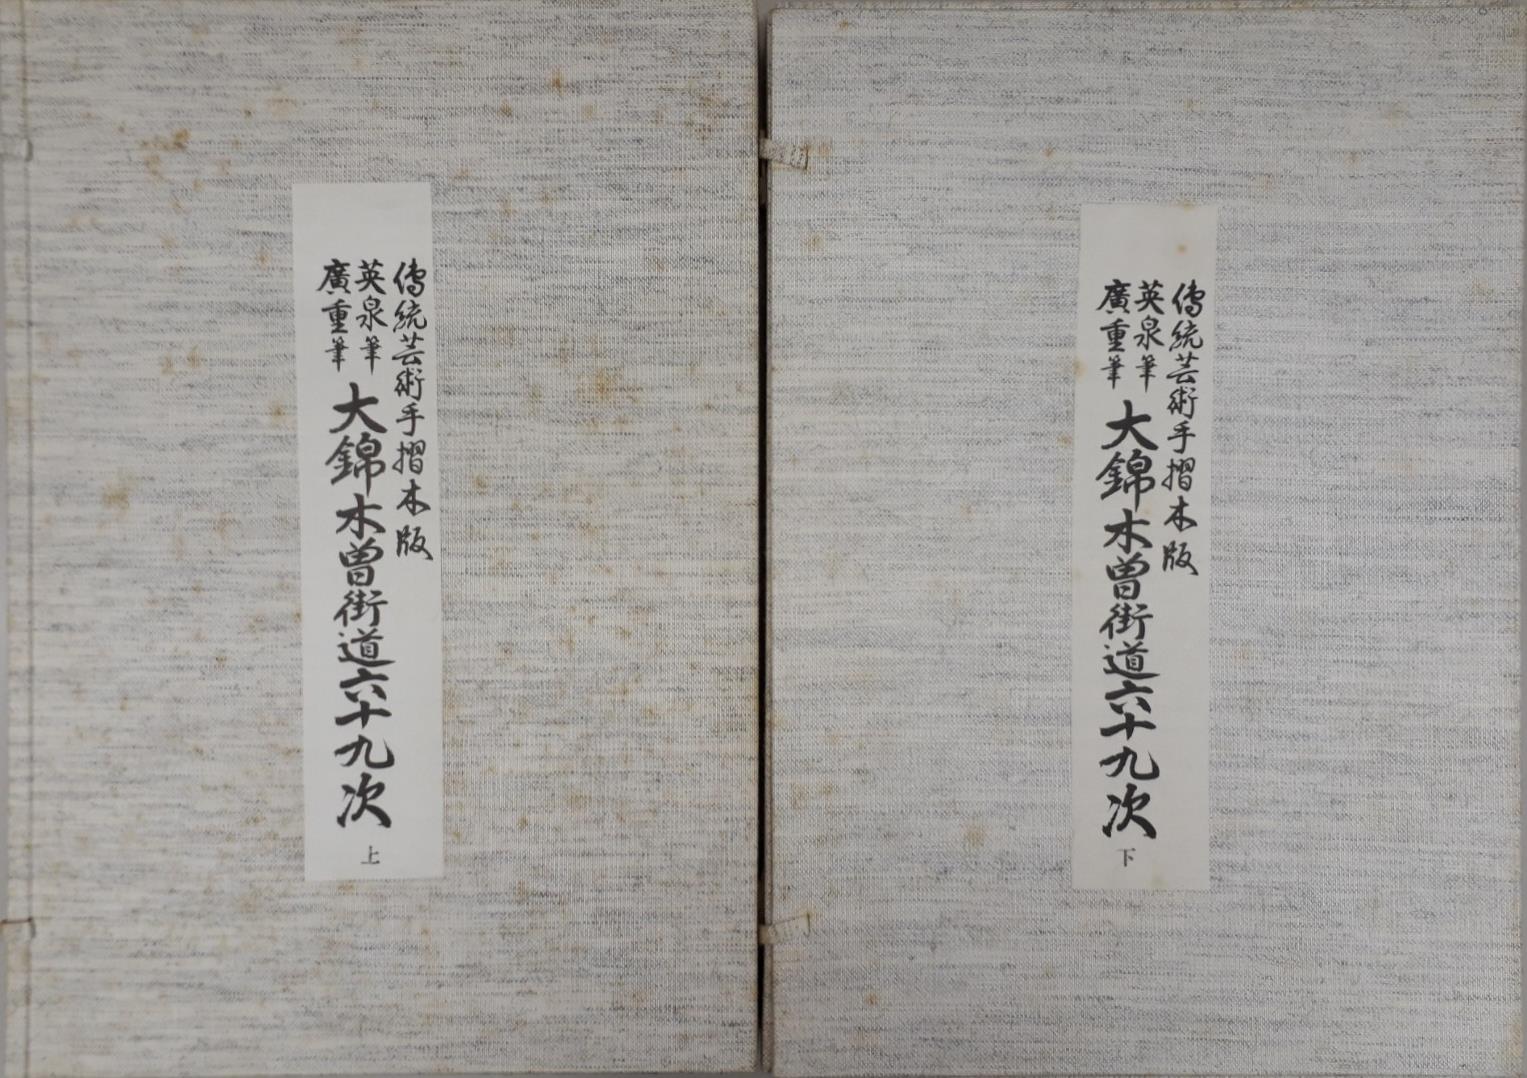 傳統芸術手摺木版
英泉筆
廣重筆
大錦木曽街道六十九次
上
傳統芸術手摺木版
英泉筆
廣重筆
大錦木曽街道六十九次
下